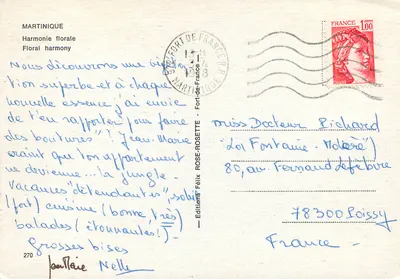 MARTINIQUE
Harmonie florale
Floral harmony
FRANCE
1,00
FORT-DE-FRANCE R.P.
MARTINIQUE
Nous découvrons une
tion superbe et à chaque
nouvelle essence, j'ai envie
de t'en rapporter pour faire
des boutures !! Jean-Marie
craint que ton appartement
ne devienne... la jungle.
Vacances "détendantes", soleil
(fort) cuisine (bonne, très)
balades (étonnantes !)
Grosses bises
Jean Marie Nelly
270
Editions Félix ROSE-ROSETTE - Fort-de-France
Miss Docteur Pichard
"La Fontaine-
80, av Fernand Lefebvre
78300 Poissy
France